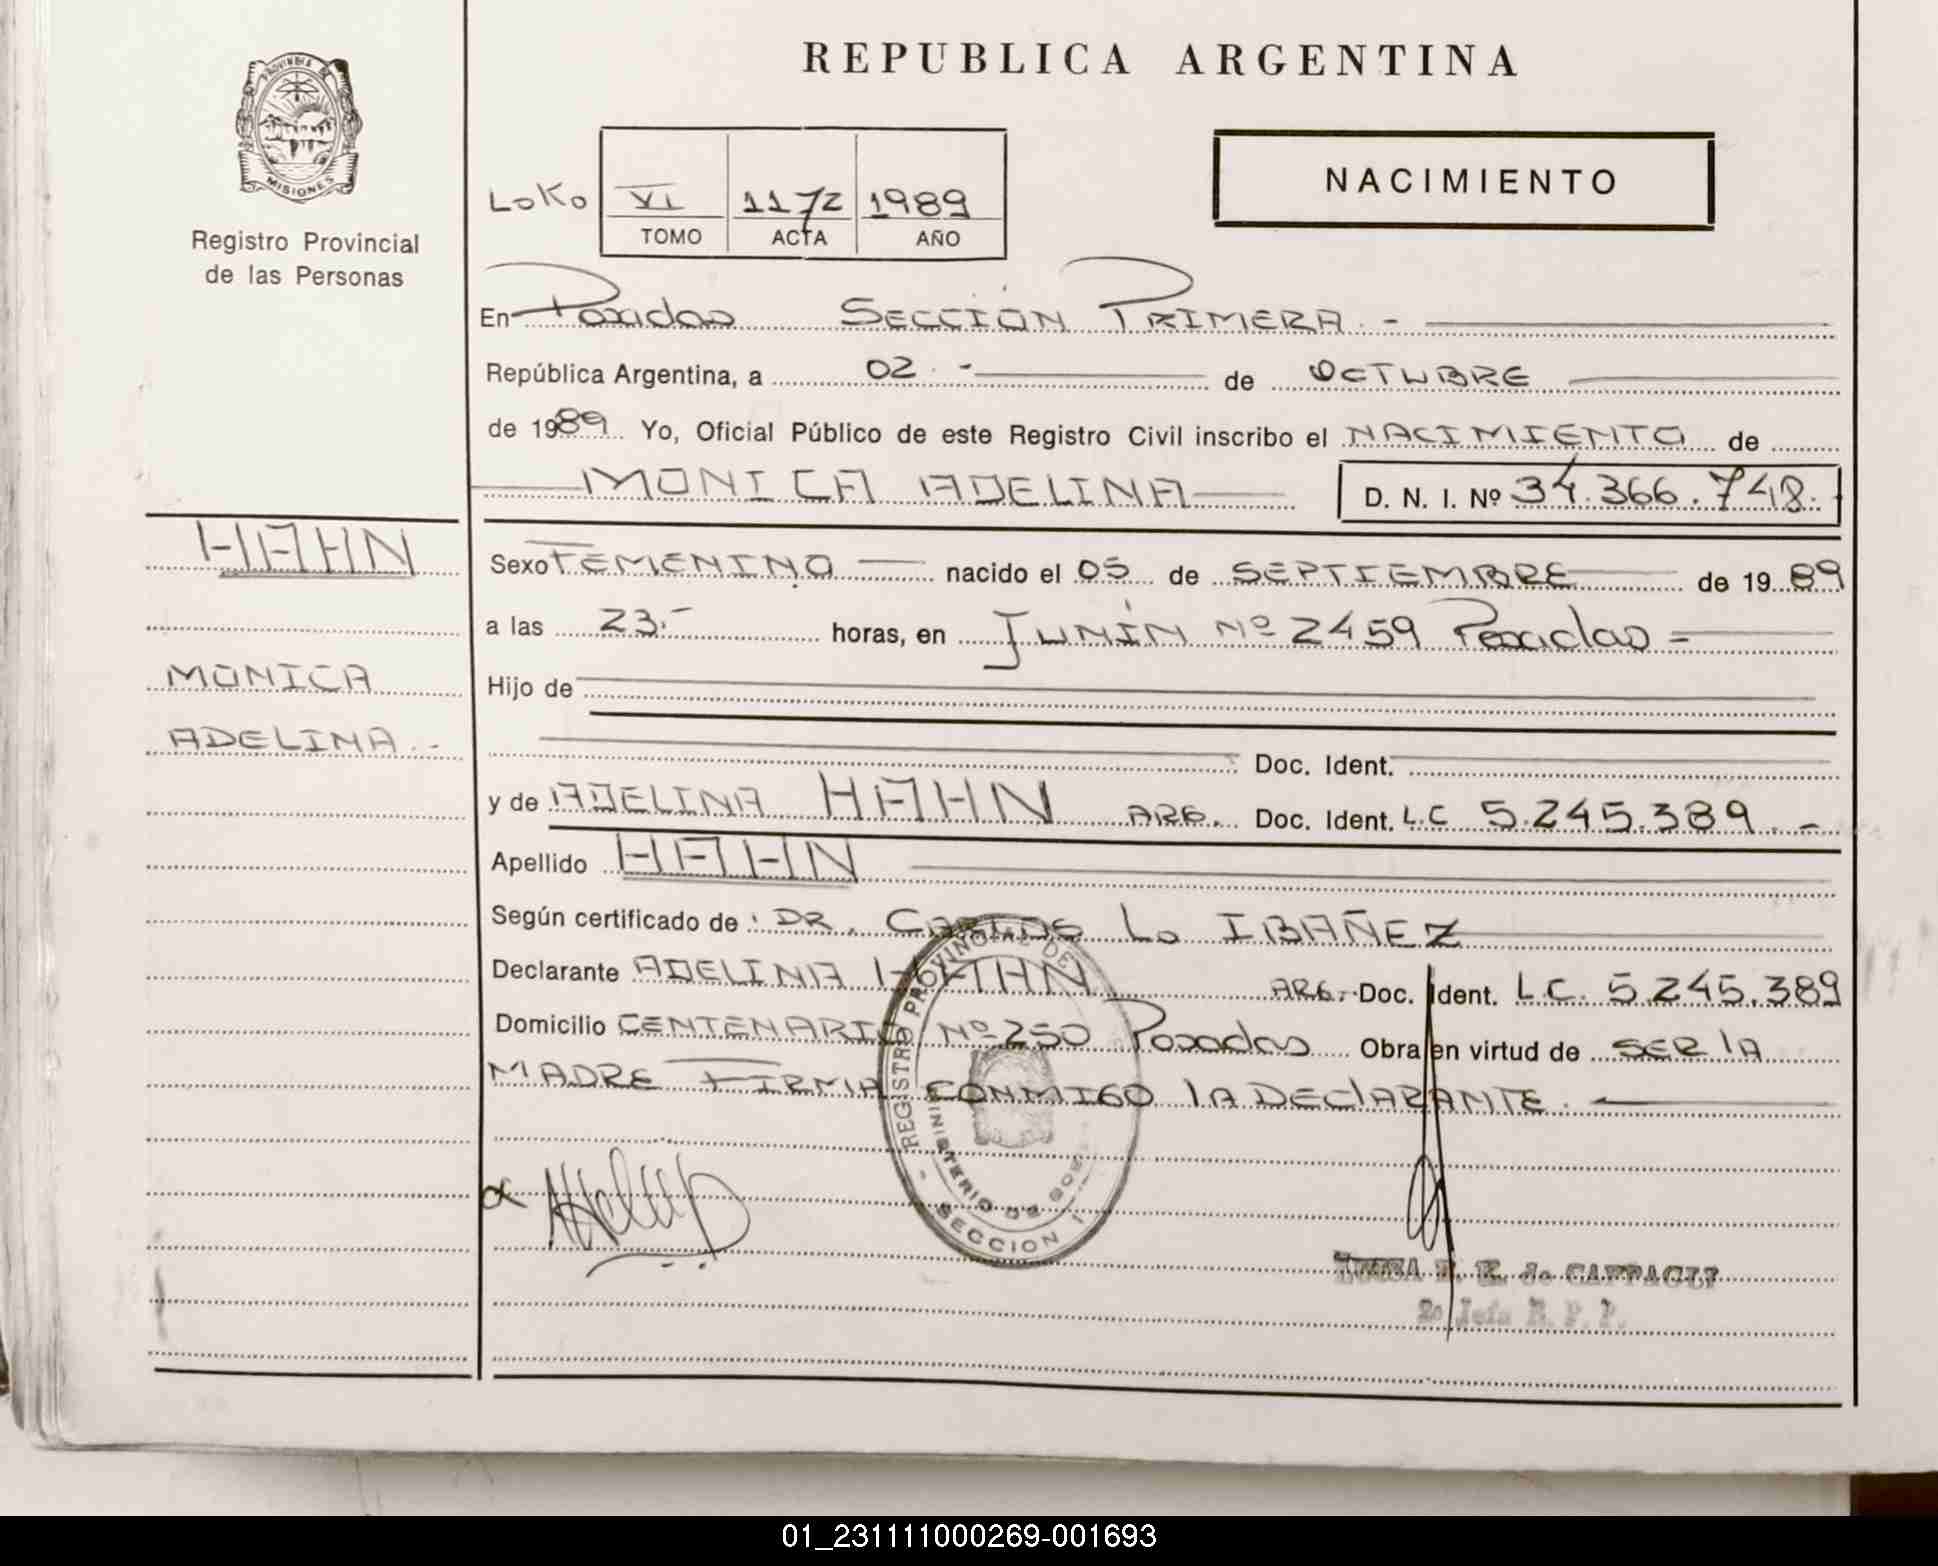 REPUBLICA ARGENTINA
PROVINCIA DE
MISIONES
Registro Provincial
de las Personas
LoKo VI 1172 1989
TOMO ACTA AÑO
NACIMIENTO
En Posadas SECCIÓN PRIMERA.-
República Argentina, a 02.- de OCTUBRE
de 1989 Yo, Oficial Público de este Registro Civil inscribo el NACIMIENTO de
MONICA ADELINA D. N. I. Nº 34.366.748.
HAHN
MONICA
ADELINA.-
Sexo FEMENINO nacido el 05 de SEPTIEMBRE de 1989
a las 23.- horas, en JUNÍN Nº 2459 Posadas-
Hijo de
Doc. Ident.
y de ADELINA HAHN ARG. Doc. Ident. L.C 5.245.389.-
Apellido HAHN
Según certificado de: DR. CARLOS L. IBAÑEZ
Declarante ADELINA HAHN ARG. Doc. Ident. L.C. 5.245.389
Domicilio CENTENARIO Nº 250 Posadas Obra en virtud de SER lA
MADRE FIRMA CONMIGO lA DEClARANTE.
REGISTRO PROVINCIAL DE
MINISTERIO DE GOB
SECCION 1
de CAFFAGLI
2º Jefa R. P. P.
01_231111000269-001693